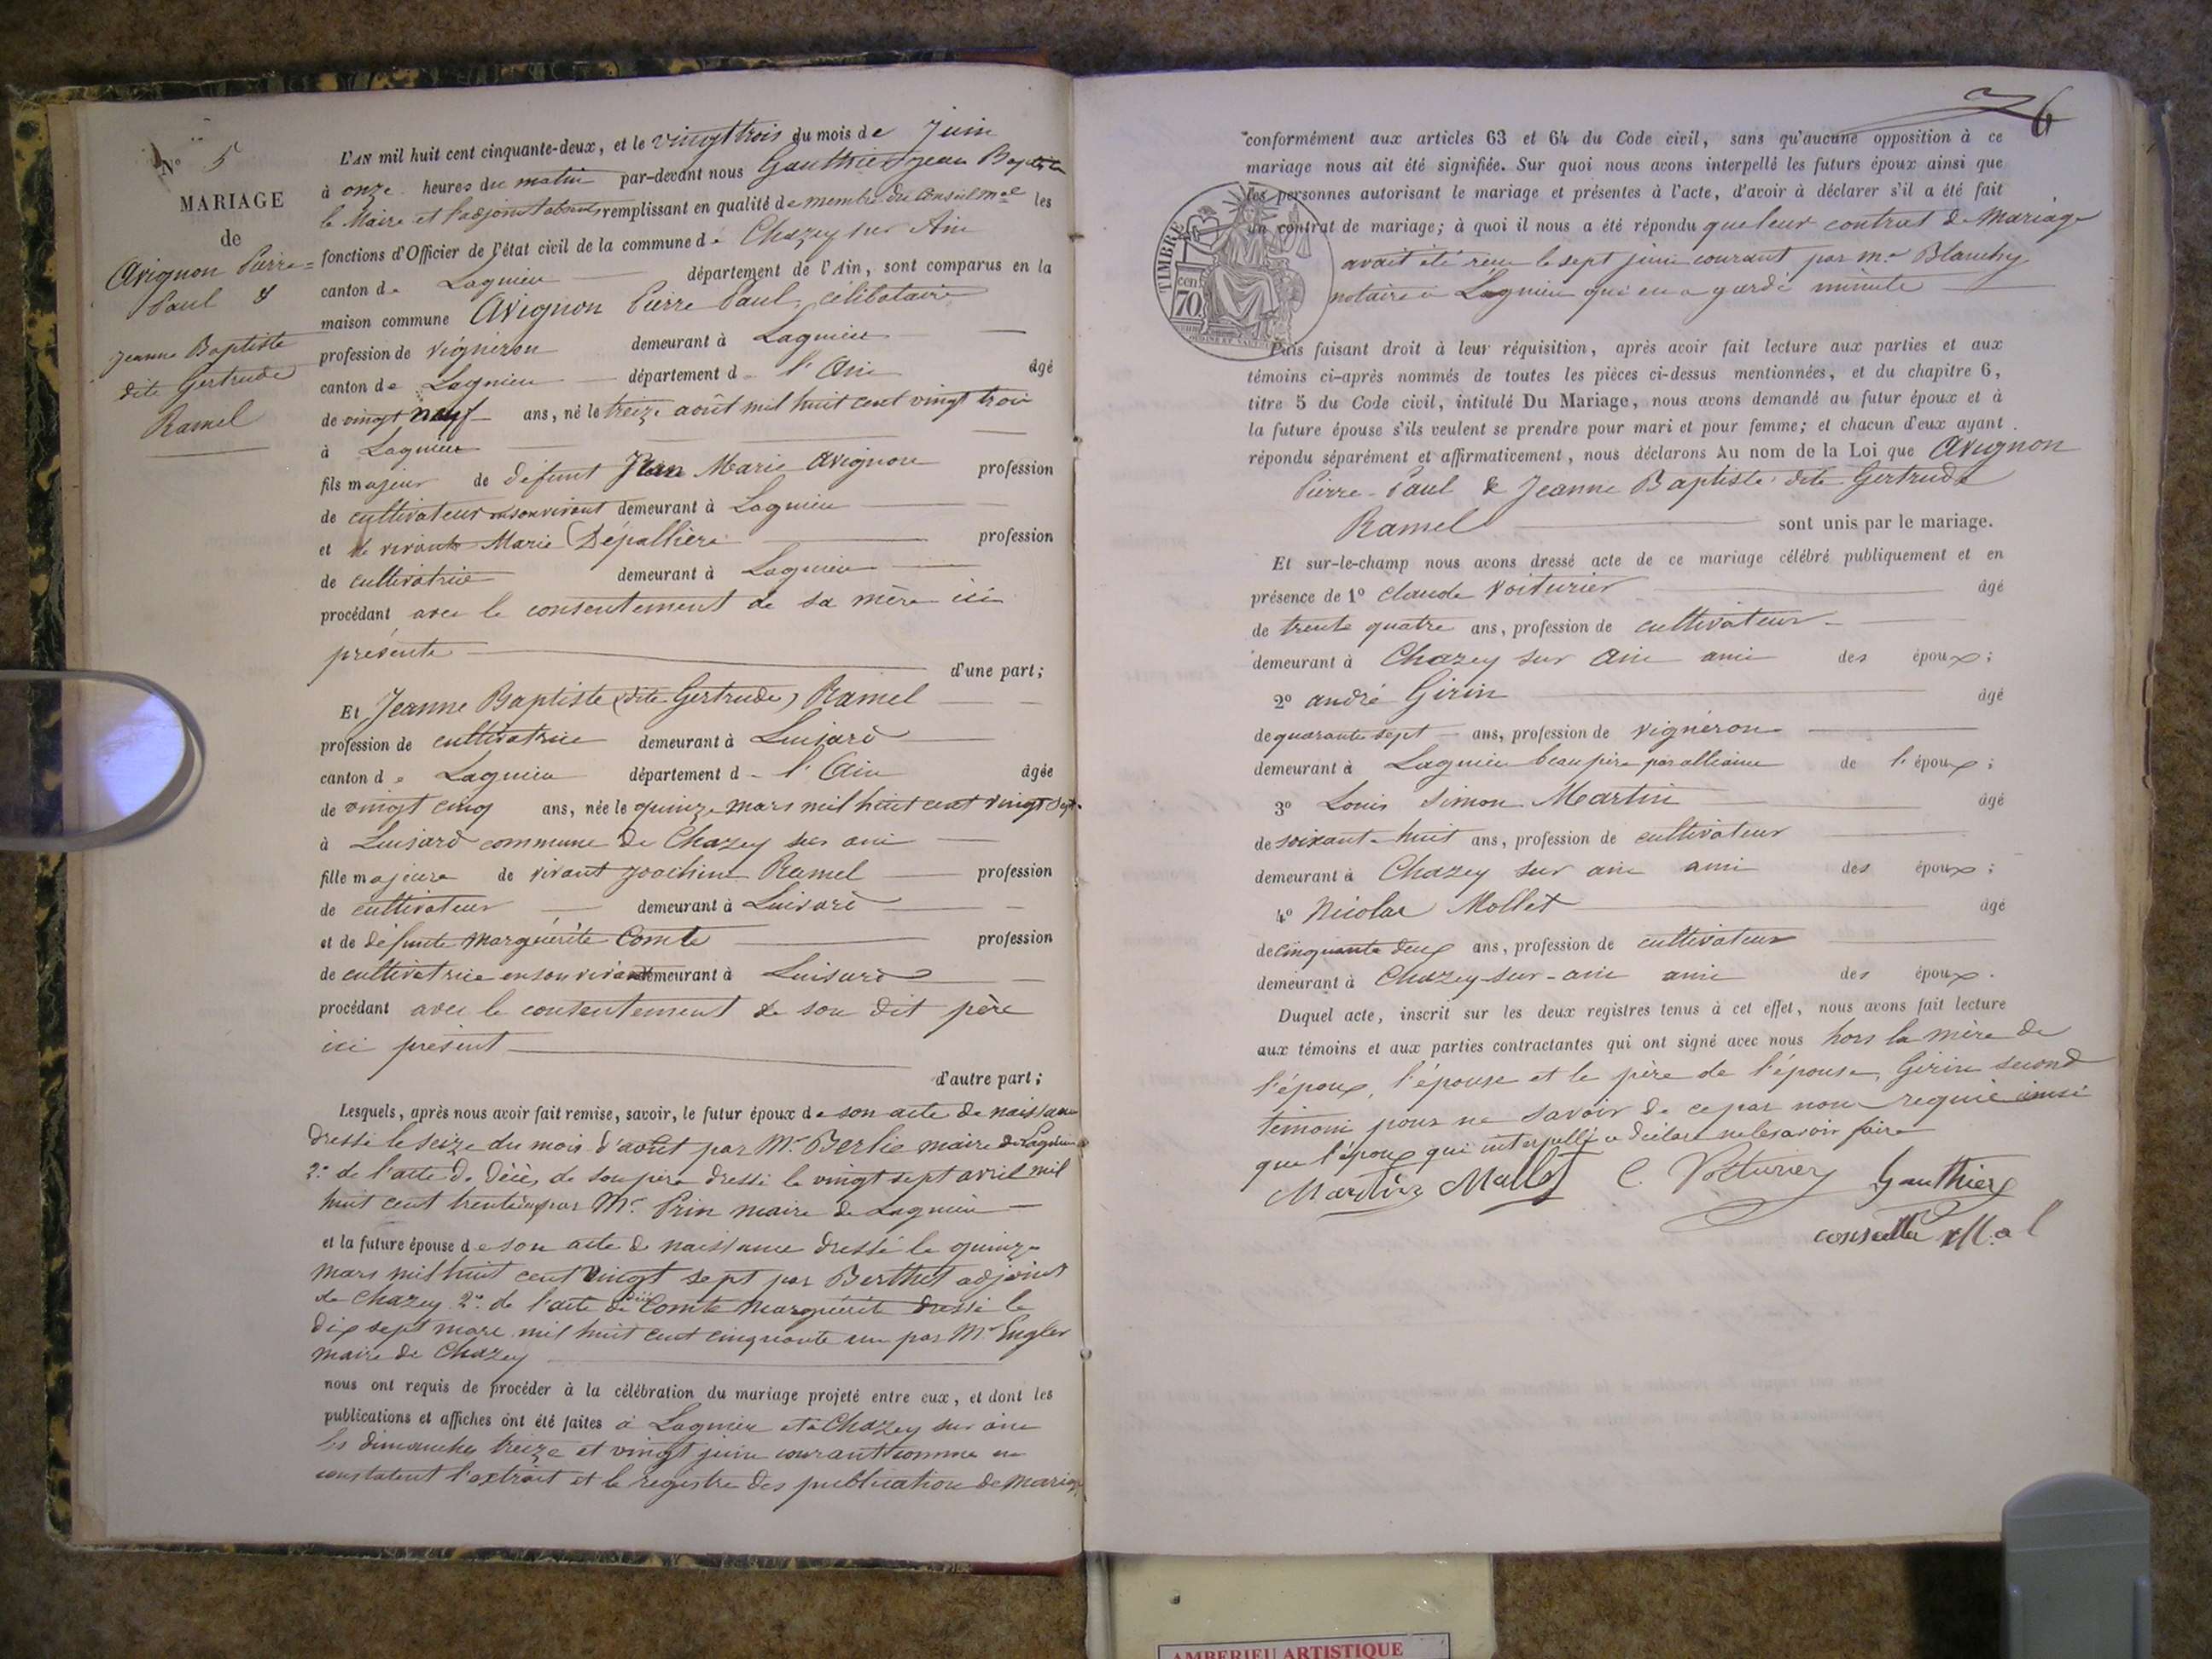 N° 5
MARIAGE
de
Avignon Pierre=
Paul &
Jeanne Baptiste
dite Gertrude
Ramel
L'AN mil huit cent cinquante-deux, et le vingt trois du mois de Juin
à onze heures du matin par-devant nous Gauthier Jean Baptiste
le Maire et l'adjoint absents remplissant en qualité de membre du Conseil mal les
fonctions d'Officier de l'état civil de la commune de Chazey sur Ain
canton de Lagnieu département de l'Ain, sont comparus en la
maison commune Avignon Pierre Paul, célibataire
profession de vigneron demeurant à Lagnieu
canton de Lagnieu département d l'Ain âgé
de vingt neuf ans, né le treize août mil huit cent vingt trois
à Lagnieu
fils majeur de défunt Jean Marie Avignon profession
de cultivateur en son vivant demeurant à Lagnieu
et de vivante Marie Dépallière profession
de cultivatrice demeurant à Lagnieu
procédant avec le consentement de sa mère ici
présente
d'une part;
Et Jeanne Baptiste (dite Gertrude) Ramel
profession de cultivatrice demeurant à Luisard
canton de Lagnieu département d l'Ain âgée
de vingt cinq ans, née le quinze mars mil huit cent vingt sept
à Luisard commune de Chazey sur ain
fille majeure de vivant Joachim Ramel profession
de cultivateur demeurant à Luisard
et de défunte Marguérite Comte profession
de cultivatrice en son vivant demeurant à Luisard
procédant avec le consentement de son dit père
ici présent
d'autre part;
Lesquels, après nous avoir fait remise, savoir, le futur époux de son acte de naissance
dressé le seize du mois d'août par Mr Berlie maire de Lagnieu
2° de l'acte de décès de son père dressé le vingt sept avril mil
huit cent trente par Mr Prin maire de Lagnieu
et la future épouse de son acte de naissance dressé le quinze
mars mil huit cent vingt sept par Berthet adjoint
de Chazey 2° de l'acte de décès Comte Marguérite dressé le
dix sept mars mil huit cent cinquante un par Mr Engler
maire de Chazey
nous ont requis de procéder à la célébration du mariage projeté entre eux, et dont les
publications et affiches ont été faites à Lagnieu et à Chazey sur ain
les dimanches treize et vingt juin courant comme en
constatent l'extrait et le registre des publication de mariage
6
conformément aux articles 63 et 64 du Code civil, sans qu'aucune opposition à ce
mariage nous ait été signifiée. Sur quoi nous avons interpellé les futurs époux ainsi que
les personnes autorisant le mariage et présentes à l'acte, d'avoir à déclarer s'il a été fait
un contrat de mariage; à quoi il nous a été répondu que leur contrat de Mariage
avait été reçu le sept juin courant par me Blanchy
notaire à Lagnieu qui en a gardé minute
TIMBRE
70
Puis faisant droit à leur réquisition, après avoir fait lecture aux parties et aux
témoins ci-après nommés de toutes les pièces ci-dessus mentionnées, et du chapitre 6,
titre 5 du Code civil, intitulé Du Mariage, nous avons demandé au futur époux et à
la future épouse s'ils veulent se prendre pour mari et pour femme; et chacun d'eux ayant
répondu séparément et affirmativement, nous déclarons Au nom de la Loi que Avignon
Pierre-Paul & Jeanne Baptiste dite Gertrude
Ramel sont unis par le mariage.
Et sur-le-champ nous avons dressé acte de ce mariage célébré publiquement et en
présence de 1° Claude Voiturier âgé
de trente quatre ans, profession de cultivateur
demeurant à Chazey sur ain ami des époux;
2° andré Girin âgé
de quarante sept ans, profession de vigneron
demeurant à Lagnieu beau père par alliance de l'époux;
3° Louis Simon Martin âgé
de soixante huit ans, profession de cultivateur
demeurant à Chazey sur ain ami des époux;
4° Nicolas Mollet âgé
de cinquante deux ans, profession de cultivateur
demeurant à Chazey-sur-ain ami des époux.
Duquel acte, inscrit sur les deux registres tenus à cet effet, nous avons fait lecture
aux témoins et aux parties contractantes qui ont signé avec nous hors la mère de
l'époux, l'épouse et le père de l'épouse, Girin second
témoin pour ne savoir de ce par nous requis ainsi
que l'époux qui interpellé a déclaré ne le savoir faire
Martin Mollet C. Voiturier Gauthier
conseiller Mal
AMBERIEU ARTISTIQUE